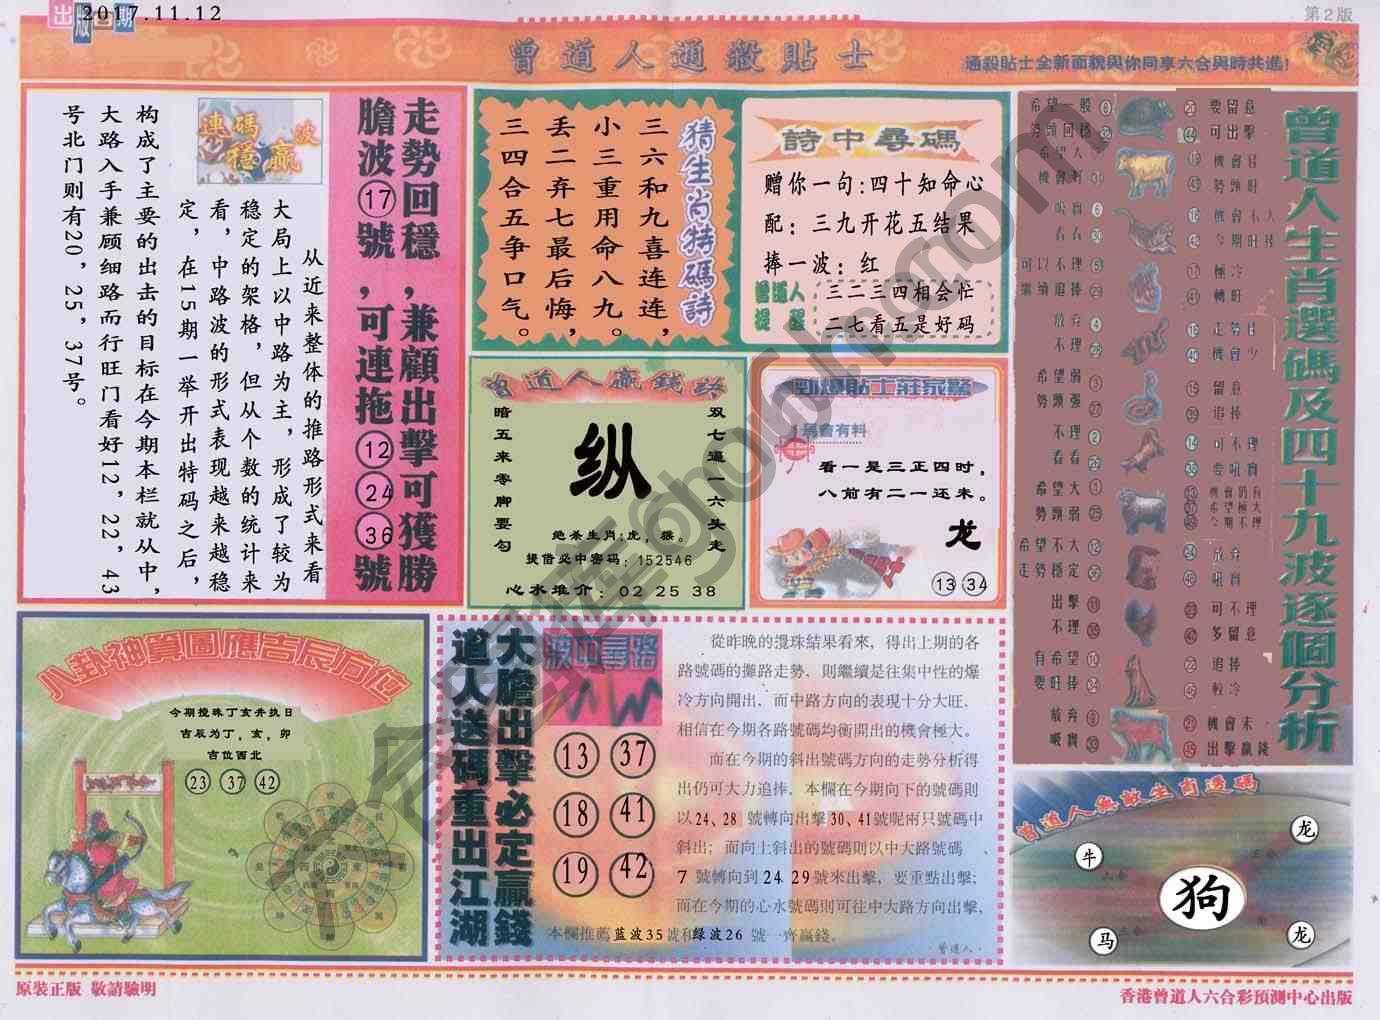 出版日期
2017.11.12
第2版
曾道人通殺貼士
通殺貼士全新面貌與你同享六合與時共進!
走勢回穩,兼顧出擊可獲勝
膽波⑰號,可連拖⑫㉔㊱號
連碼穩贏波
从近来整体的推路形式来看
大局上以中路为主,形成了较为
稳定的架格,但从个数的统计来
看,中路波的形式表现越来越稳
定,在15期一举开出特码之后,
构成了主要的出击的目标在今期本栏就从中,
大路入手兼顾细路而行旺门看好12,22,43
号北门则有20,25,37号。
猜生肖特碼詩
三六和九喜连连,
小三重用命八九。
丢二弃七最后悔,
三四合五争口气。
詩中尋碼
赠你一句:四十知命心
配:三九开花五结果
捧一波:红
曾道人提醒
三二三四相会忙
二七看五是好码
曾道人贏錢路
双七逼一六头走
暗五来零脚要勾
纵
绝杀生肖:虎,猴。
提借必中密码:152546
心水推介:02 25 38
勁爆貼士莊家驚
馬會有料
看一是三正四时,
八前有二一还来。
龙
13 34
曾道人生肖選碼及四十九波逐個分析
希望一般
要留意
可出擊
希望人
吸實
看看
機會不大
今期旺捧
可以不理
繼續追捧
極冷
轉旺
放弃
不理
機會少
希望弱
勢頭强
留意
追捧
不理
看看
可不理
要吼實
希望大
勢頭弱
希望極大
今期不理
希望不大
走勢穩定
放弃
吼實
出擊
不理
可不理
多留意
有希望
要旺捧
追捧
較冷
放弃
吸實
機會未
出擊贏錢
八卦神算圖應吉辰方位
今期搅珠丁亥年执日
吉辰为丁,亥,卯
吉位西北
23 37 42
大膽出擊必定贏錢
道人送碼重出江湖
波中尋路
13 37
18 41
19 42
從昨晚的攪珠結果看來,得出上期的各
路號碼的攤路走勢,則繼續是往集中性的爆
冷方向開出,而中路方向的表現十分大旺,
相信在今期各路號碼均衡開出的機會極大。
而在今期的斜出號碼方向的走勢分析得
出仍可大力追捧,本欄在今期向下的號碼則
以24、28 號轉向出擊30、41號呢兩只號碼中
斜出;而向上斜出的號碼則以中大路號碼
7 號轉向到24 29號來出擊,要重點出擊;
而在今期的心水號碼則可往中大路方向出擊,
本欄推薦蓝波35號和绿波26 號一齊贏錢。
·曾道人·
曾道人無敵生肖選碼
龙
牛
狗
马
龙
原裝正版 敬請驗明
香港曾道人六合彩預測中心出版